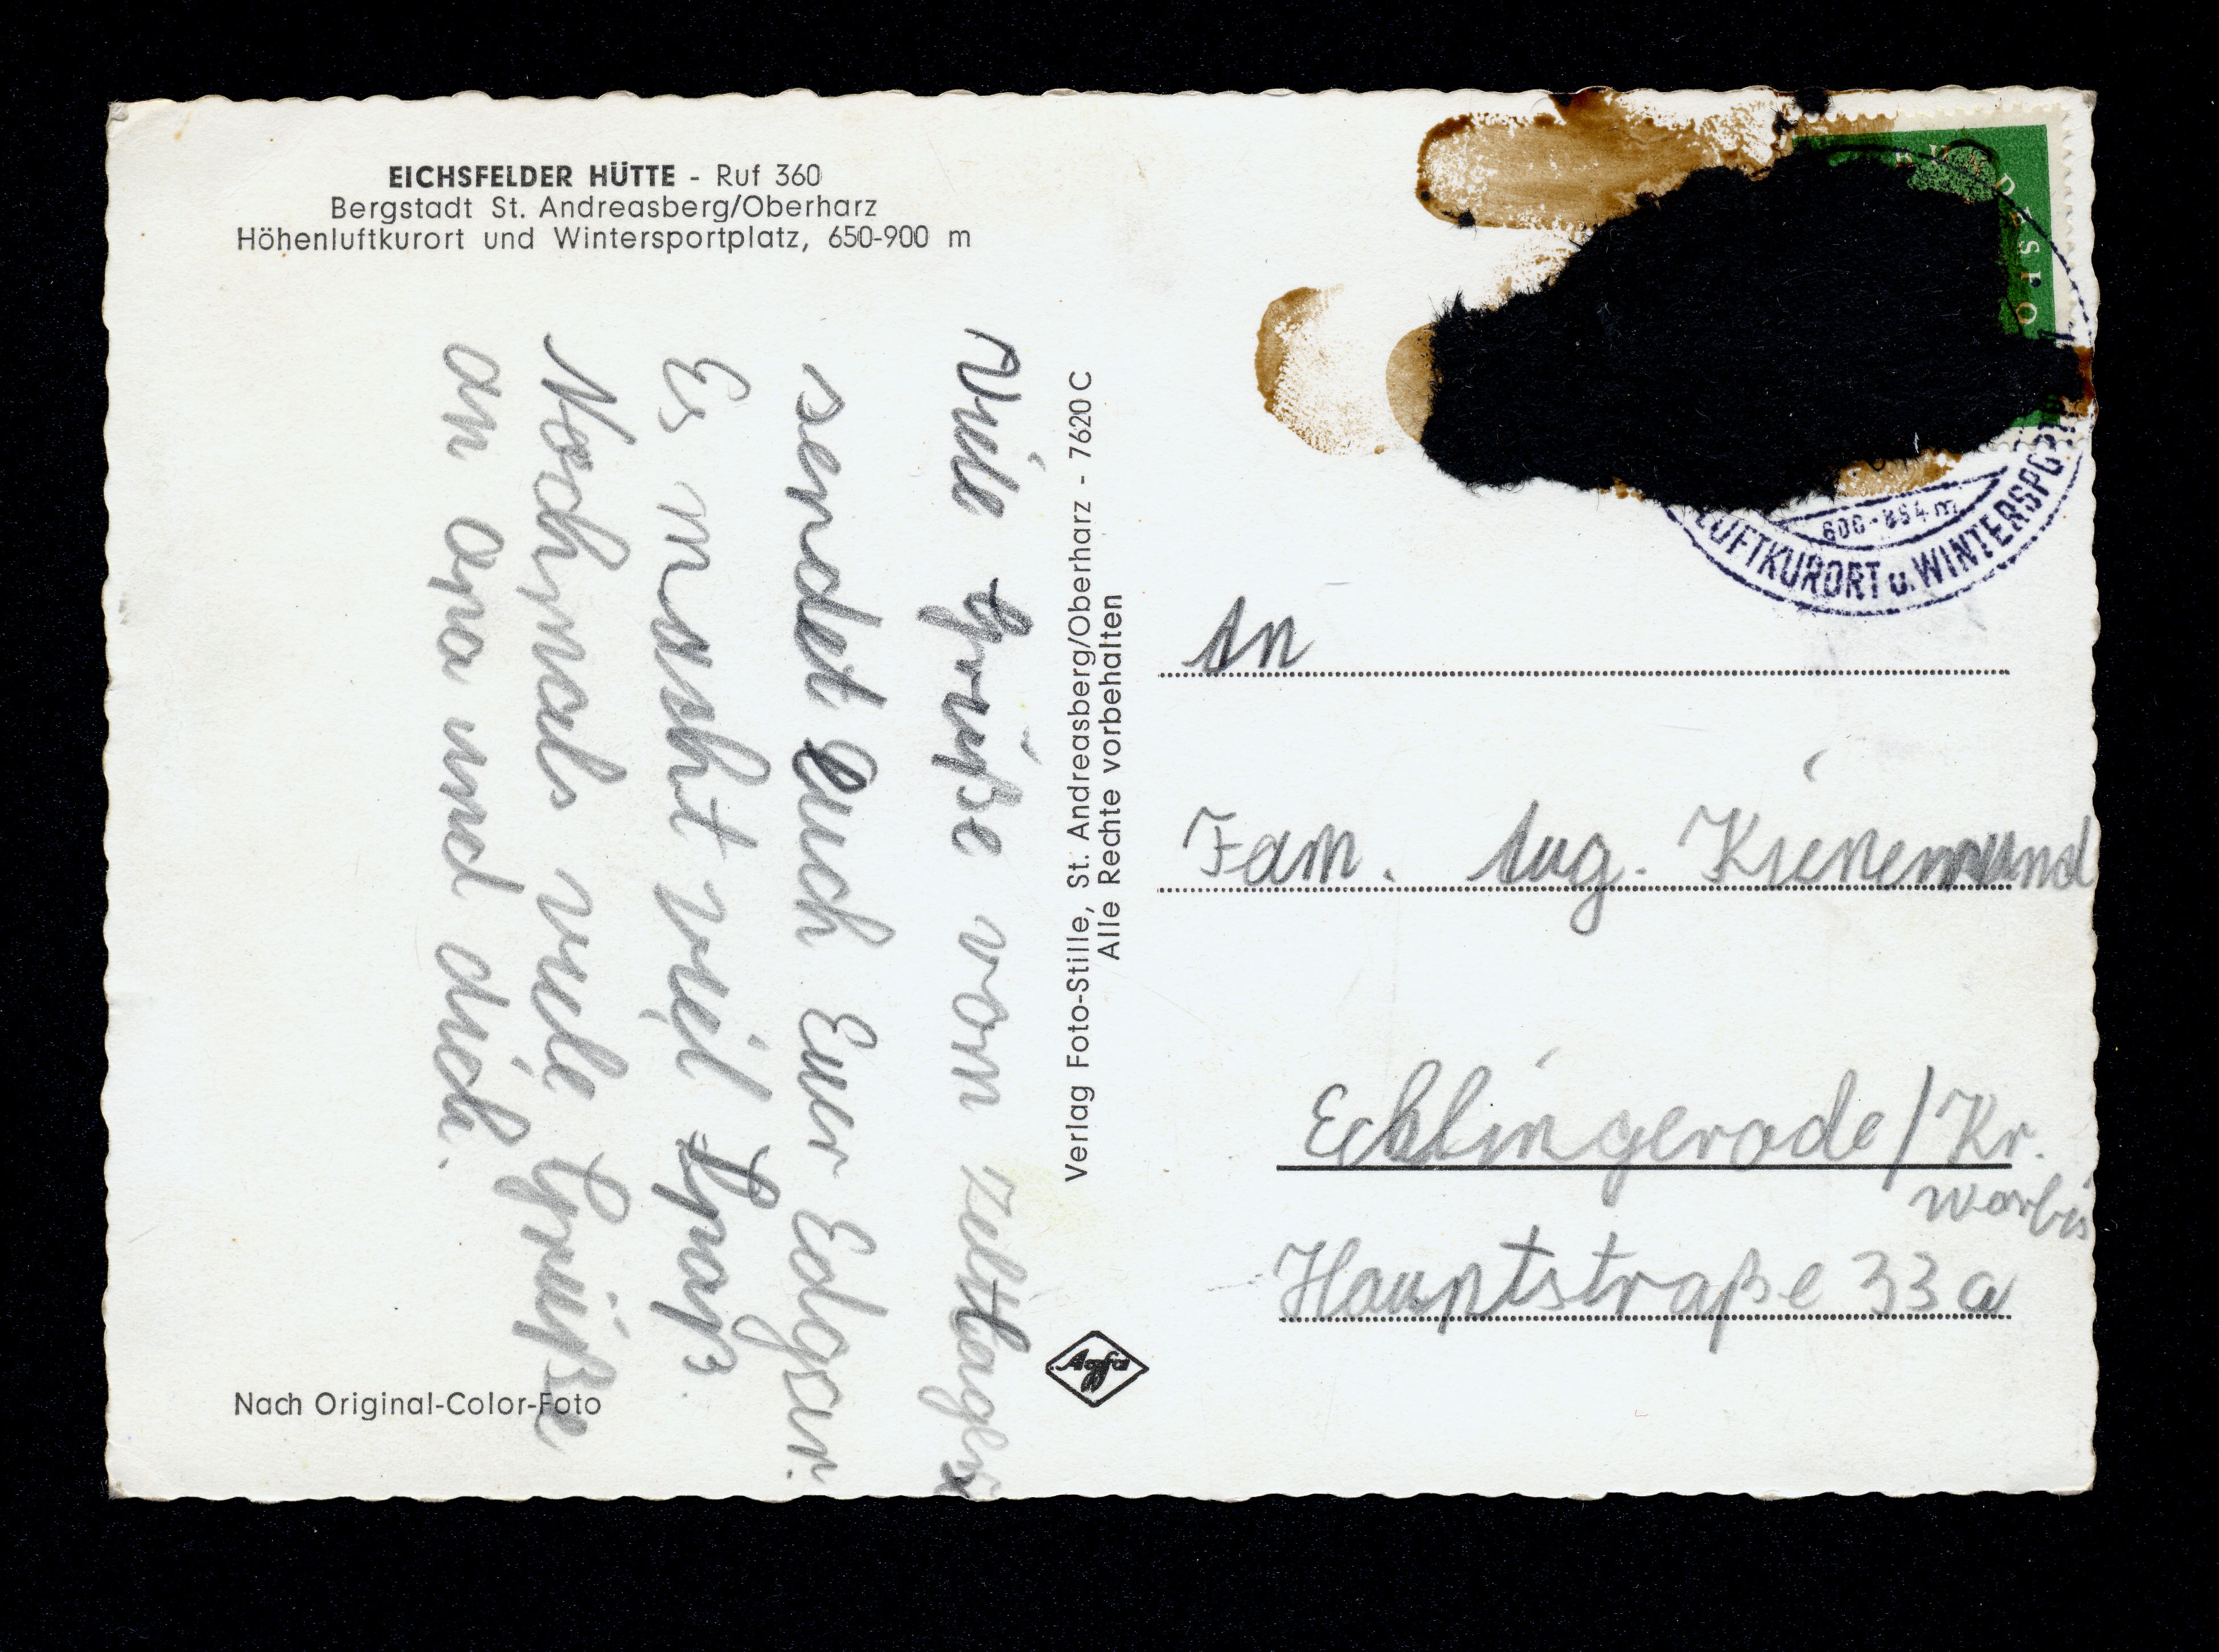 EICHSFELDER HÜTTE - Ruf 360
Bergstadt St. Andreasberg/Oberharz
Höhenluftkurort und Wintersportplatz, 650-900 m
Viele Grüße vom Zeltlager
sendet Euch Euer Edgar.
Es macht viel Spaß.
Nochmals viele Grüße
an Opa und dich.
Nach Original-Color-Foto
Verlag Foto-Stille, St. Andreasberg/Oberharz - 7620 C
Alle Rechte vorbehalten
Agfa
600-894 m
LUFTKURORT u. WINTERSPO
An
Fam. Aug. Kienemund
Ecklingerode / Kr.
Worbis
Hauptstraße 33 a